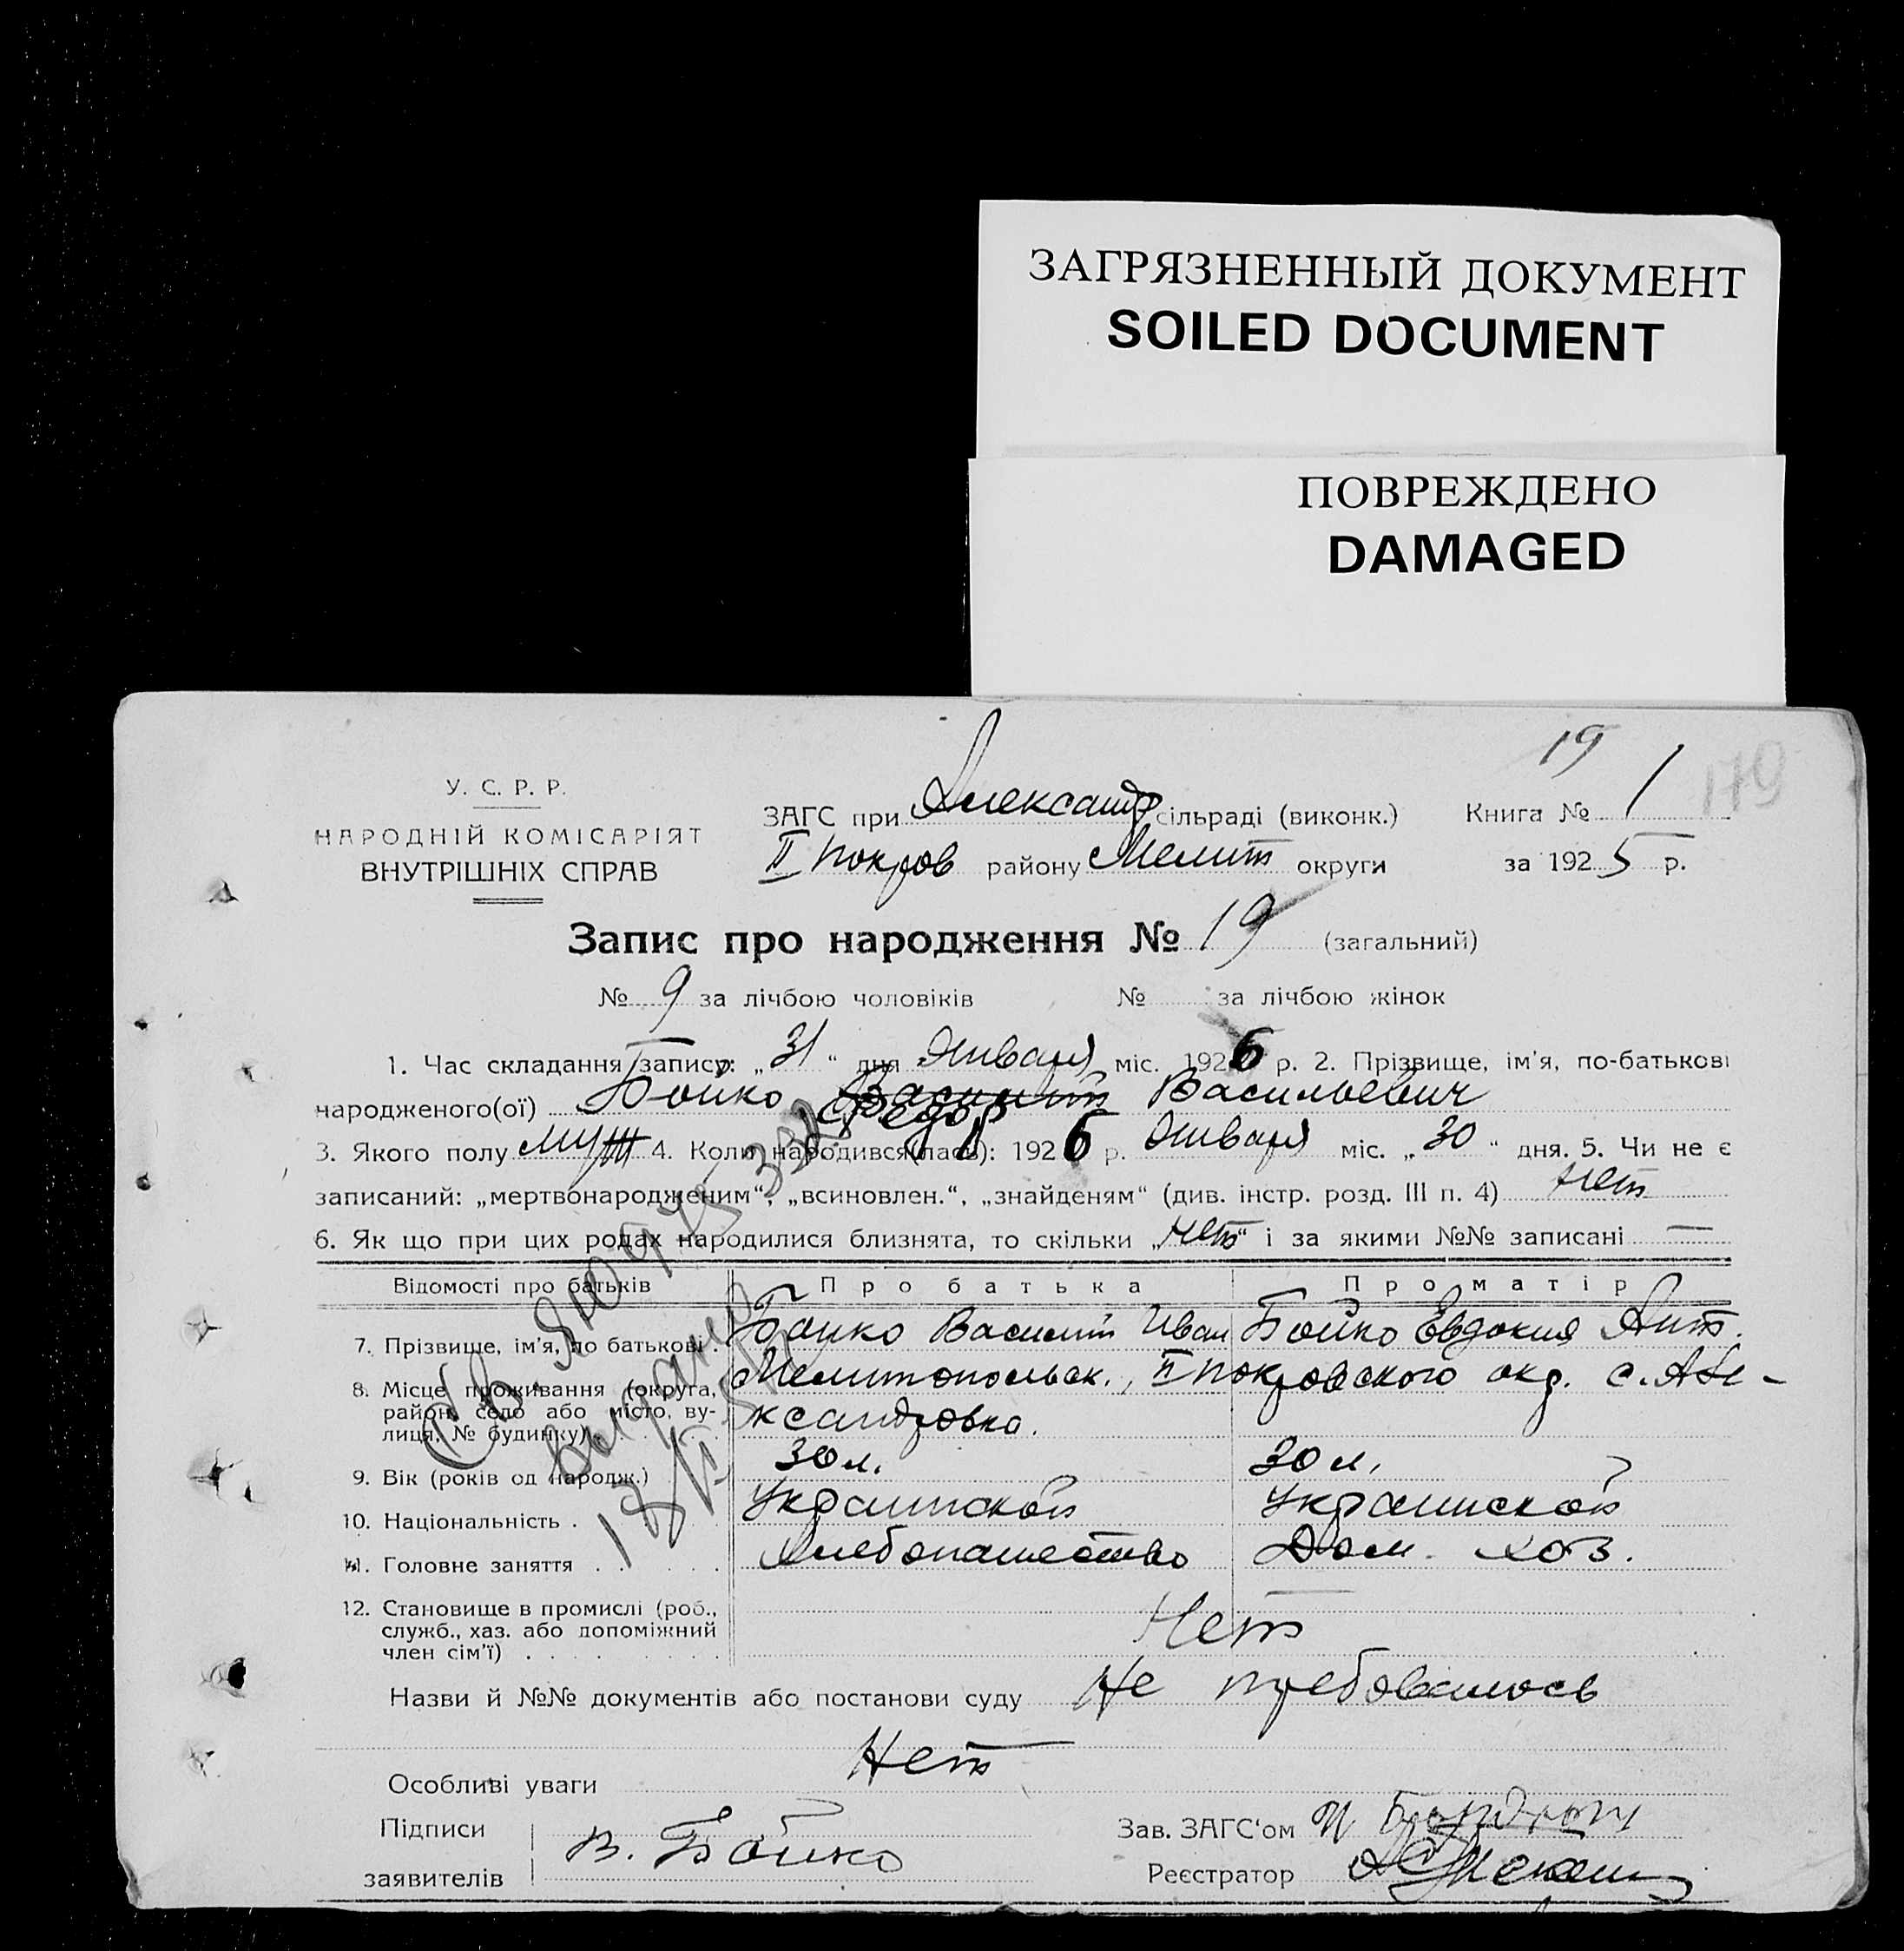 ЗАГРЯЗНЕННЫЙ ДОКУМЕНТ
SOILED DOCUMENT
ПОВРЕЖДЕНО
DAMAGED
19
179
У. С. Р. Р.
НАРОДНІЙ КОМІСАРІЯТ
ВНУТРІШНІХ СПРАВ
ЗАГС при Александр сільраді (виконк.) Книга № 1
II Покров району Мелит округи за 1925 р.
Запис про народження № 19 (загальний)
№ 9 за лічбою чоловіків № за лічбою жінок
1. Час складання запису: „31“ дня Января міс. 1926 р. 2. Прізвище, ім'я, по-батькові
народженого(ої) Бойко Василий Васильевич
Федор
3. Якого полу муж 4. Коли народився(лась): 1926 р. Января міс. „30“ дня. 5. Чи не є
записаний: „мертвонародженим“, „всиновлен.“, „знайденям“ (див. інстр. розд. III п. 4) Нет
6. Як що при цих родах народилися близнята, то скільки „Нет“ і за якими №№ записані —
Відомості про батьків Про батька Про матір
7. Прізвище, ім'я, по батькові . Бойко Василий Иван Бойко Евдокия Ант.
8. Місце проживання (округа, район, село або місто, вулиця, № будинку) Мелитопольск., II Покровского окр. с. Але-
ксандровка.
9. Вік (років од народж.) 30 л. 30 л.
10. Національність . Украинской Украинской
11. Головне заняття . . . . Хлебопашество Дом. хоз.
12. Становище в промислі (роб.,
служб., хаз. або допоміжний
член сім'ї) . . . . . Нет
Назви й №№ документів або постанови суду Не требовалось
Особливі уваги Нет
Підписи
заявителів В. Бойко
Зав. ЗАГС'ом
Реєстратор